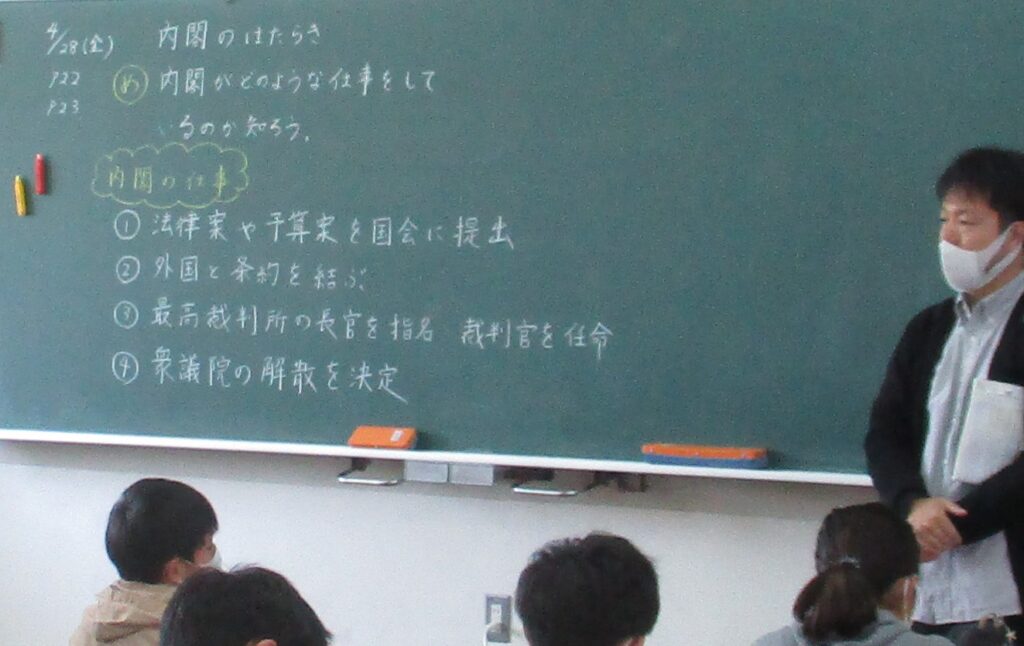 4/28(金) 内閣のはたらき
P22
P23
め 内閣がどのような仕事をして
いるのか知ろう。
内閣の仕事
① 法律案や予算案を国会に提出
② 外国と条約を結ぶ
③ 最高裁判所の長官を指名 裁判官を任命
④ 衆議院の解散を決定